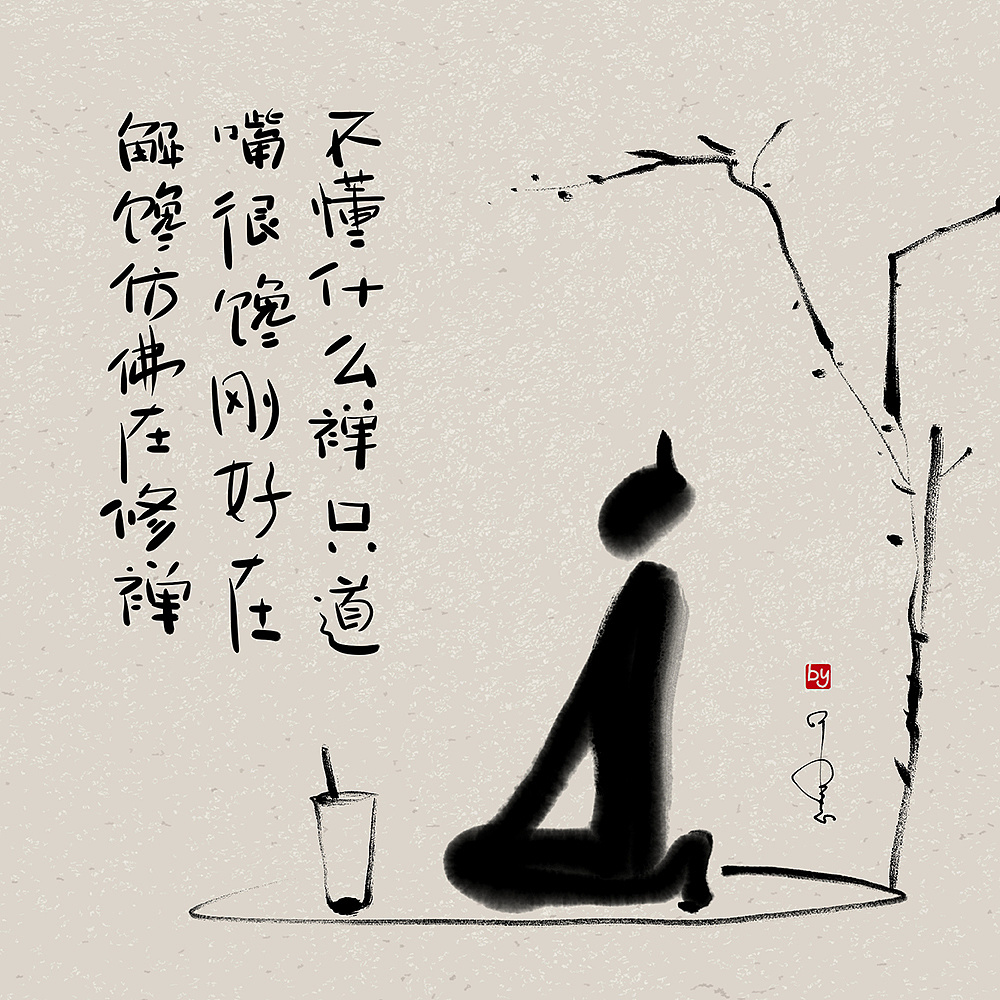 不懂什么禅只道
嘴很馋刚好在
解馋仿佛在修禅
by